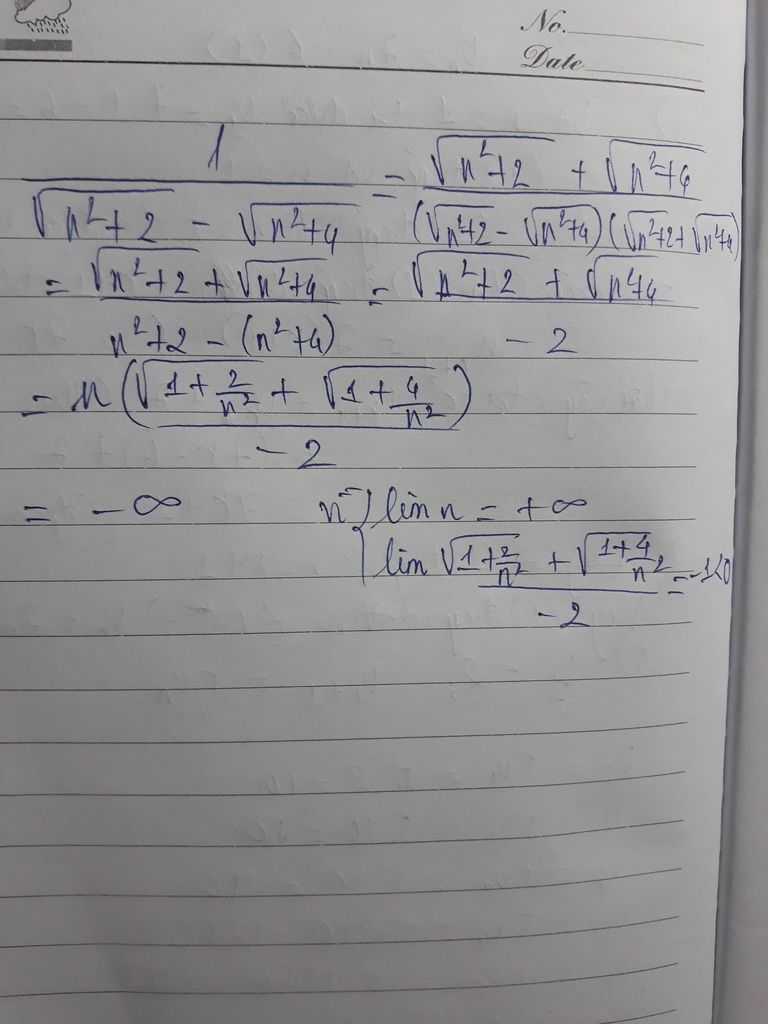 No.
Date
1/(√(n²+2) - √(n²+4)) = (√(n²+2) + √(n²+4))/((√(n²+2) - √(n²+4))(√(n²+2) + √(n²+4)))
= (√(n²+2) + √(n²+4))/(n²+2 - (n²+4)) = (√(n²+2) + √(n²+4))/(-2)
= n(√(1+2/n²) + √(1+4/n²))/(-2)
= -∞ { lim n = +∞
lim (√(1+2/n²) + √(1+4/n²))/(-2) = -1<0